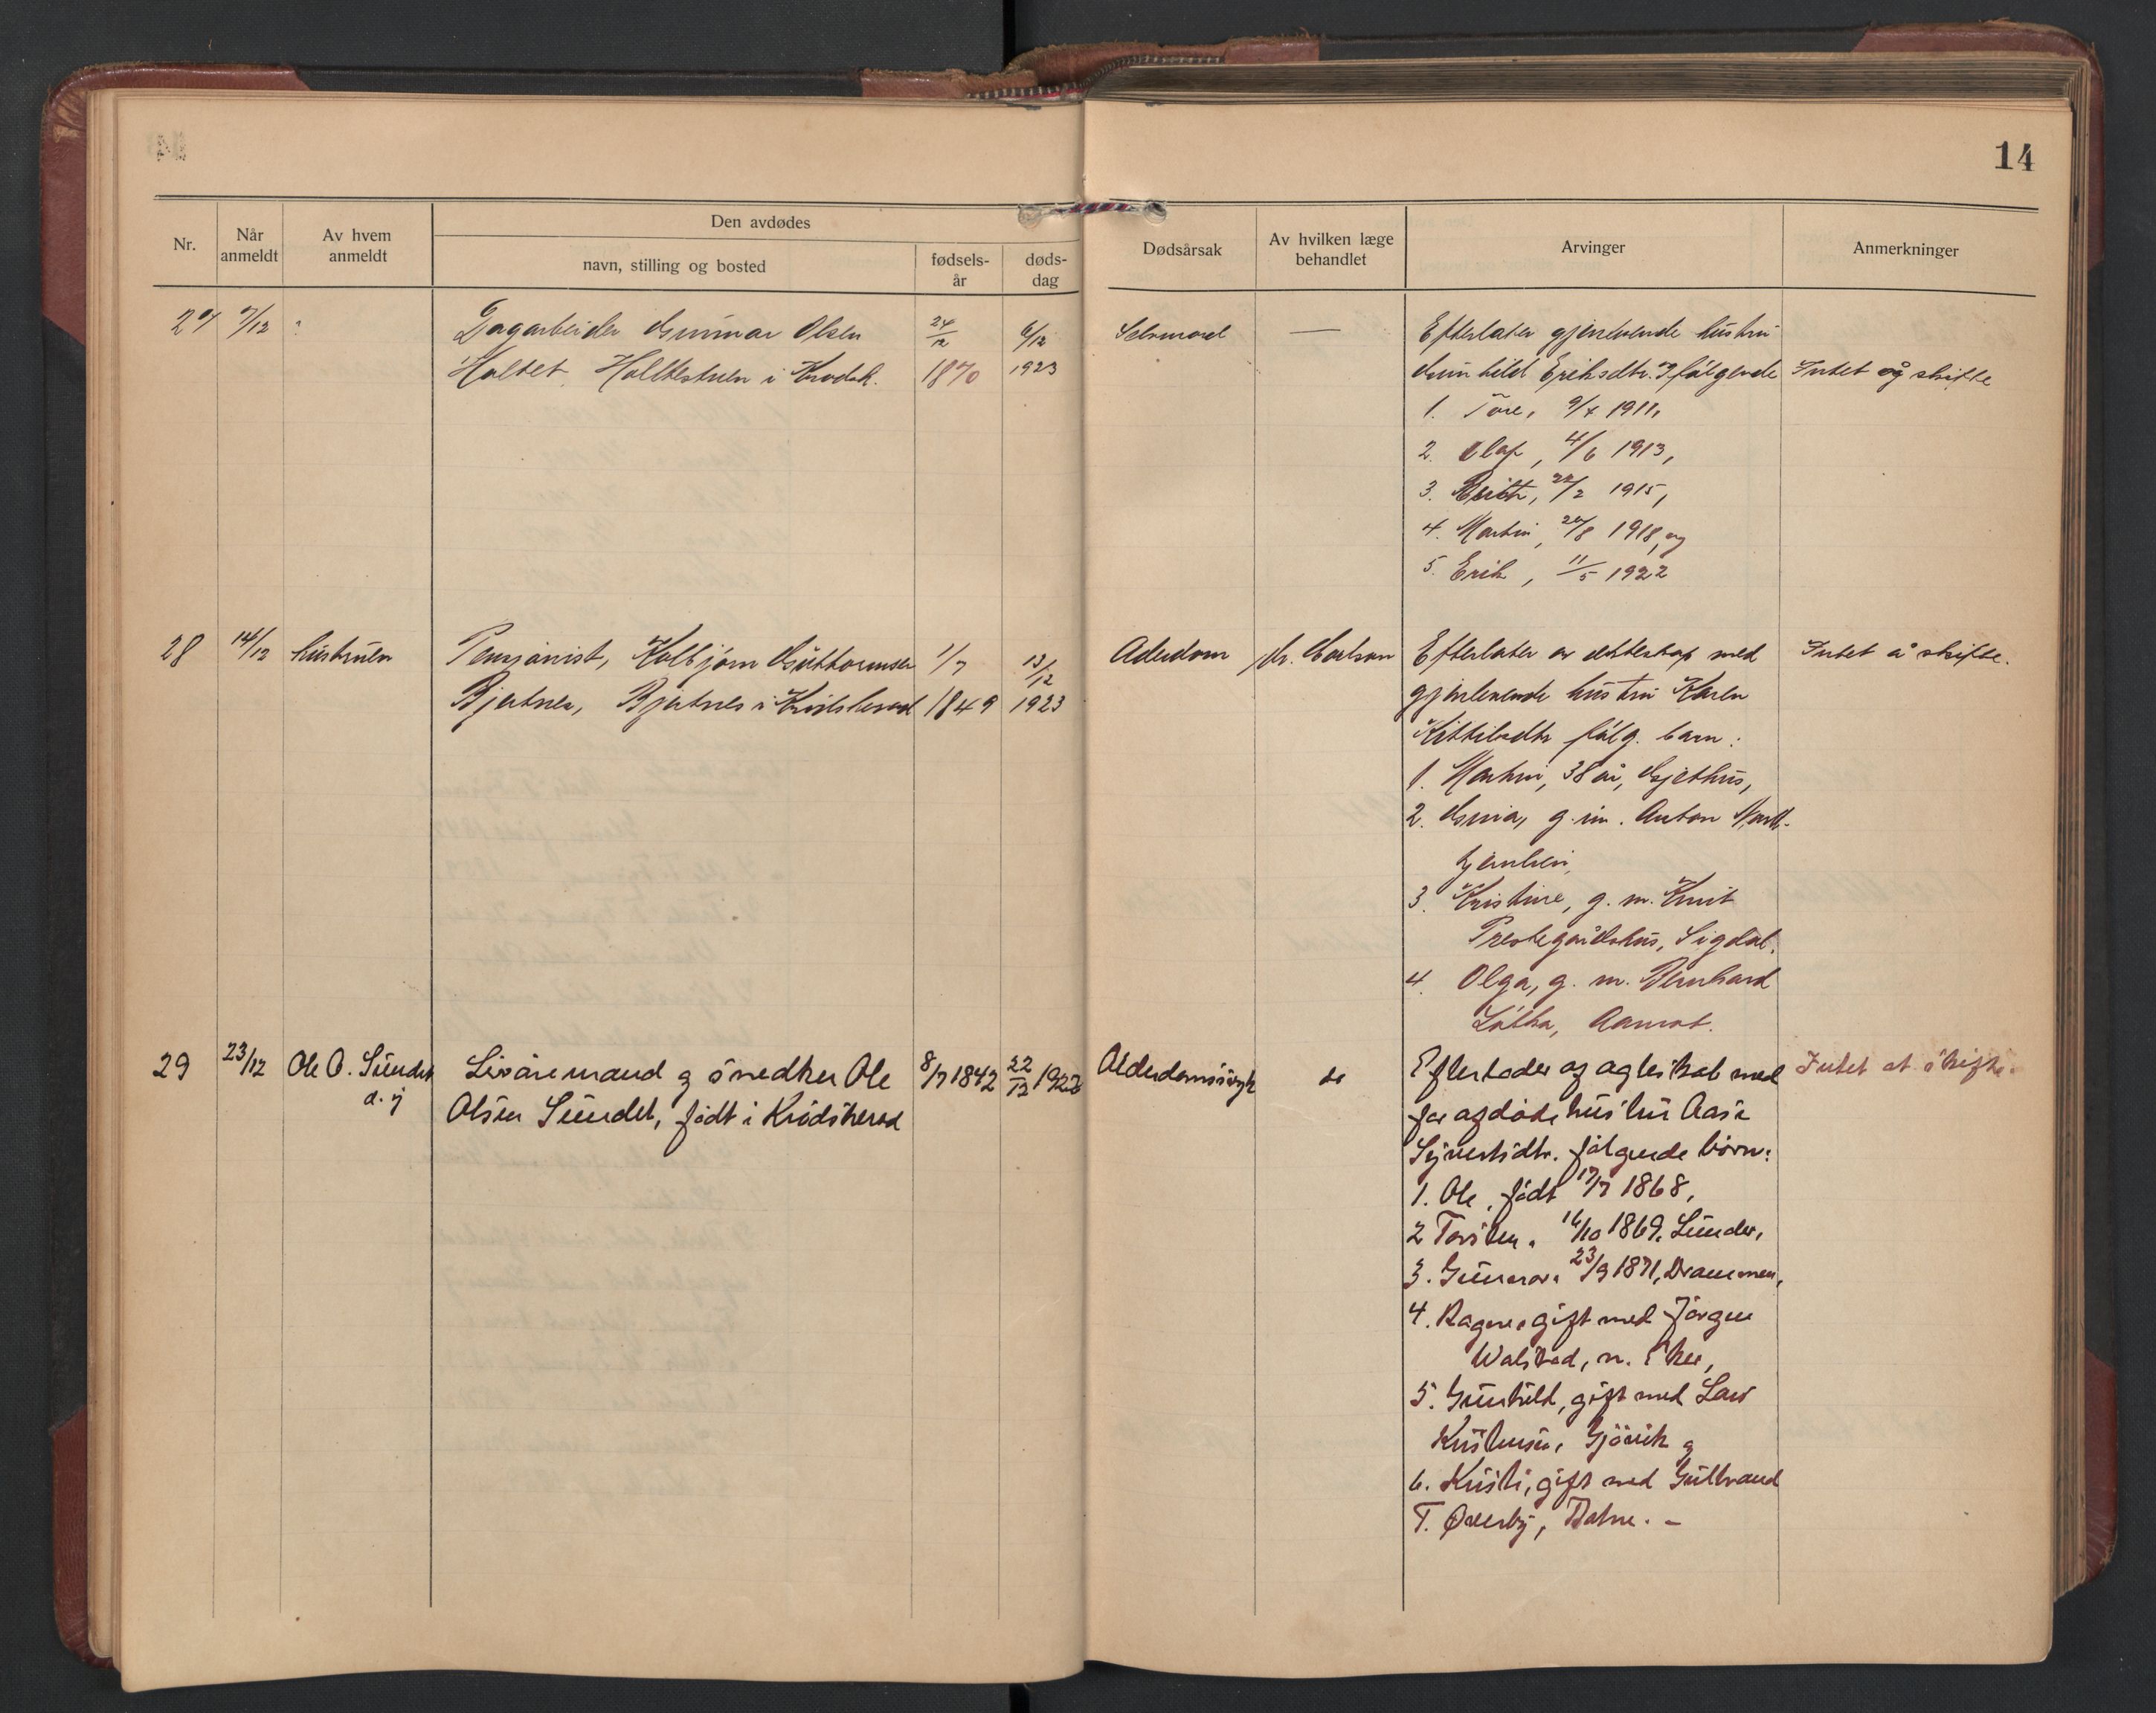 14
Nr.
Når anmeldt
Av hvem anmeldt
Den avdødes
navn, stilling og bosted
fødsels-år
døds-dag
Dødsårsak
Av hvilken læge behandlet
Arvinger
Anmerkninger
27 7/12
Dagarbeider Gunnar Olsen 24/12 6/12
Holtet, i Krødsh. 1870 1923
Selvmord —
Efterlater gjenlevende hustru
Gunhild Eriksdtr. følgende
1. Tore, 9/4 1911,
2. Olaf, 4/6 1913,
3. 22/2 1915,
4. Martin, 8 1918, og
5. Erik, 11/5 1922
Intet og skifte
28 14/12 hustruen
Pensjonist, Kolbjørn Guttormsen 1/7 13/12
Bjertnes, Bjertnes i Krødsherad 1849 1923
Alderdom
dr.
Efterlater av ekteskap med
gjenlevende hustru Karen
Kittilsdtr følg. barn:
1. Martin, 38 år, Gjethus,
2. g. m. Anton
3. Kristine, g. m. Knut
Prestegårdshus, Sigdal.
4. Olga, g. m. Bernhard
Aamot.
Intet å skifte.
29 23/12 Ole O. Sundet
d. y
Livøremand og snedker Ole 8/7 1842 22/12 1923
Olsen Sundet, født i Krødsherad
Alderdomssvagh
do
Efterlader af ægteskab med
før afdøde hustru Aase
Syvertsdtr. følgende børn:
1. Ole, født 17/7 1868,
2 Torsten, 16/10 1869, Sundet,
3. Gunnar, 23/9 1871, Drammen,
4. Ragne, gift med Jørgen
Walstad, n. Eker,
5. Gunhild, gift med Lars
Kristensen, Gjøvik og
6. Kristi, gift med Gulbrand
T. Øverby, Flatne. –
Intet at skifte.